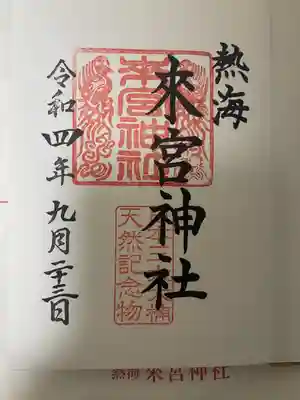 熱海
來宮神社
令和四年九月二十三日
來宮神社
天然記念物
熱海 來宮神社